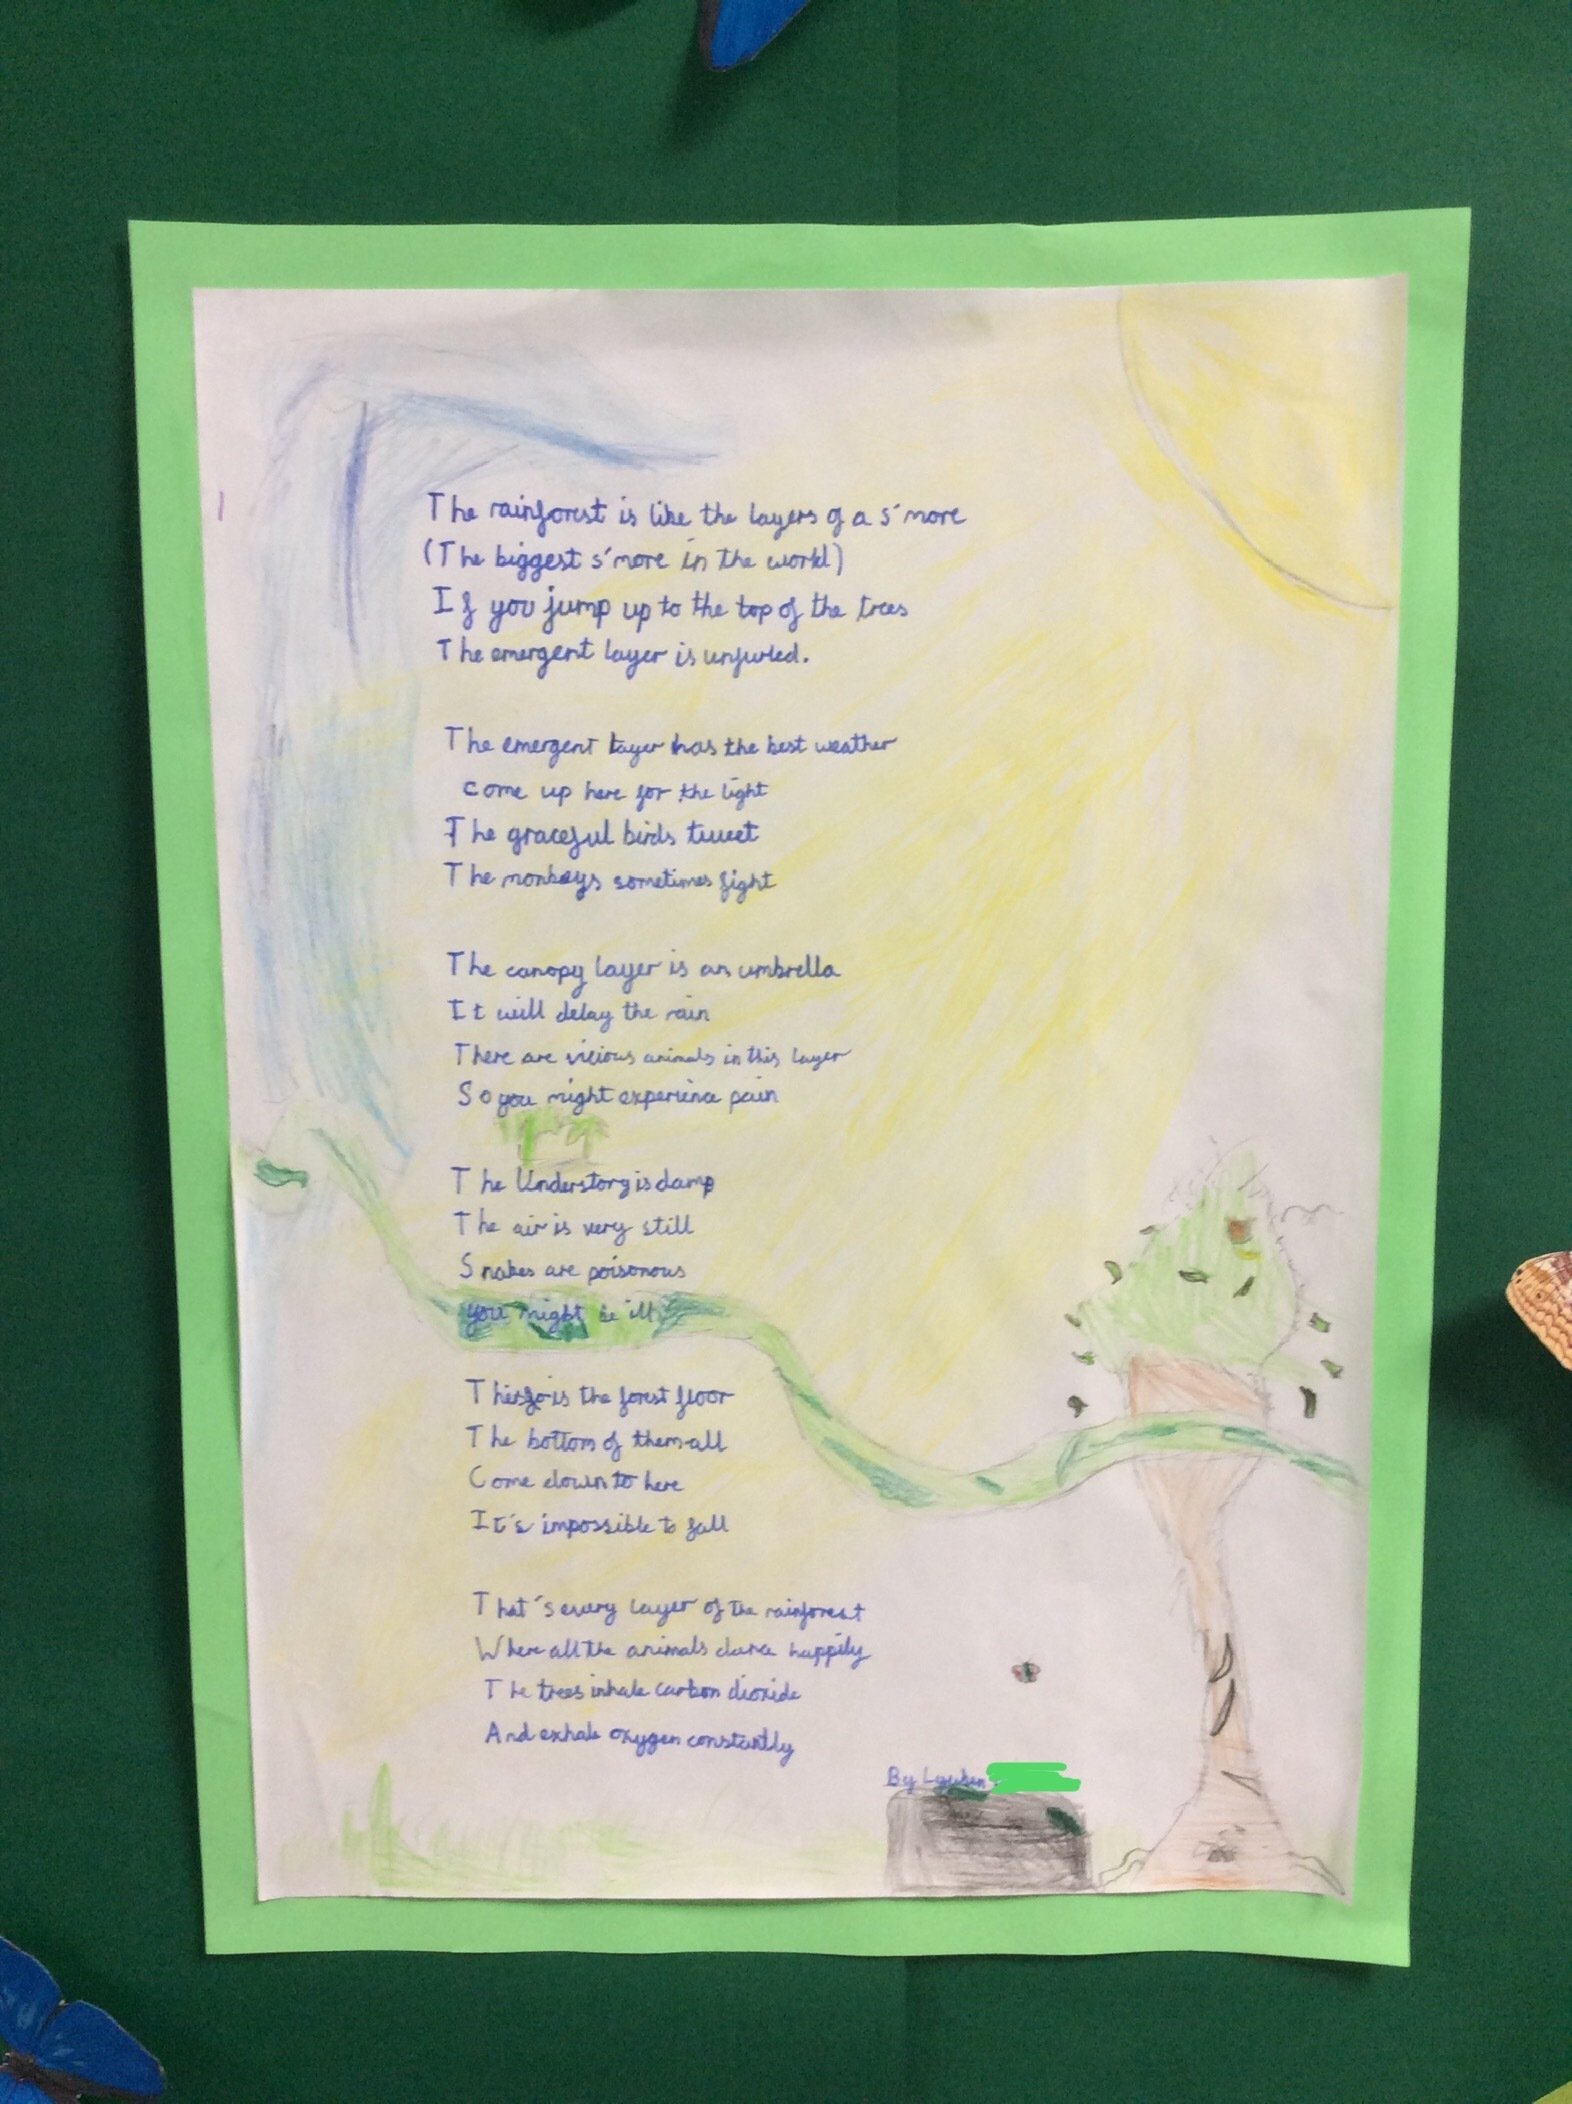 The rainforest is like the layers of a s'more
(The biggest s'more in the world)
If you jump up to the top of the trees
The emergent layer is unfurled.
The emergent layer has the best weather
come up here for the light
The graceful birds tweet
The monkeys sometimes fight
The canopy layer is an umbrella
It will delay the rain
There are vicious animals in this layer
So you might experience pain
The Understory is damp
The air is very still
Snakes are poisonous
you might be ill
is the forest floor
The bottom of them all
Come down to here
It's impossible to fall
That's every layer of the rainforest
Where all the animals dance happily
The trees inhale carbon dioxide
And exhale oxygen constantly
By